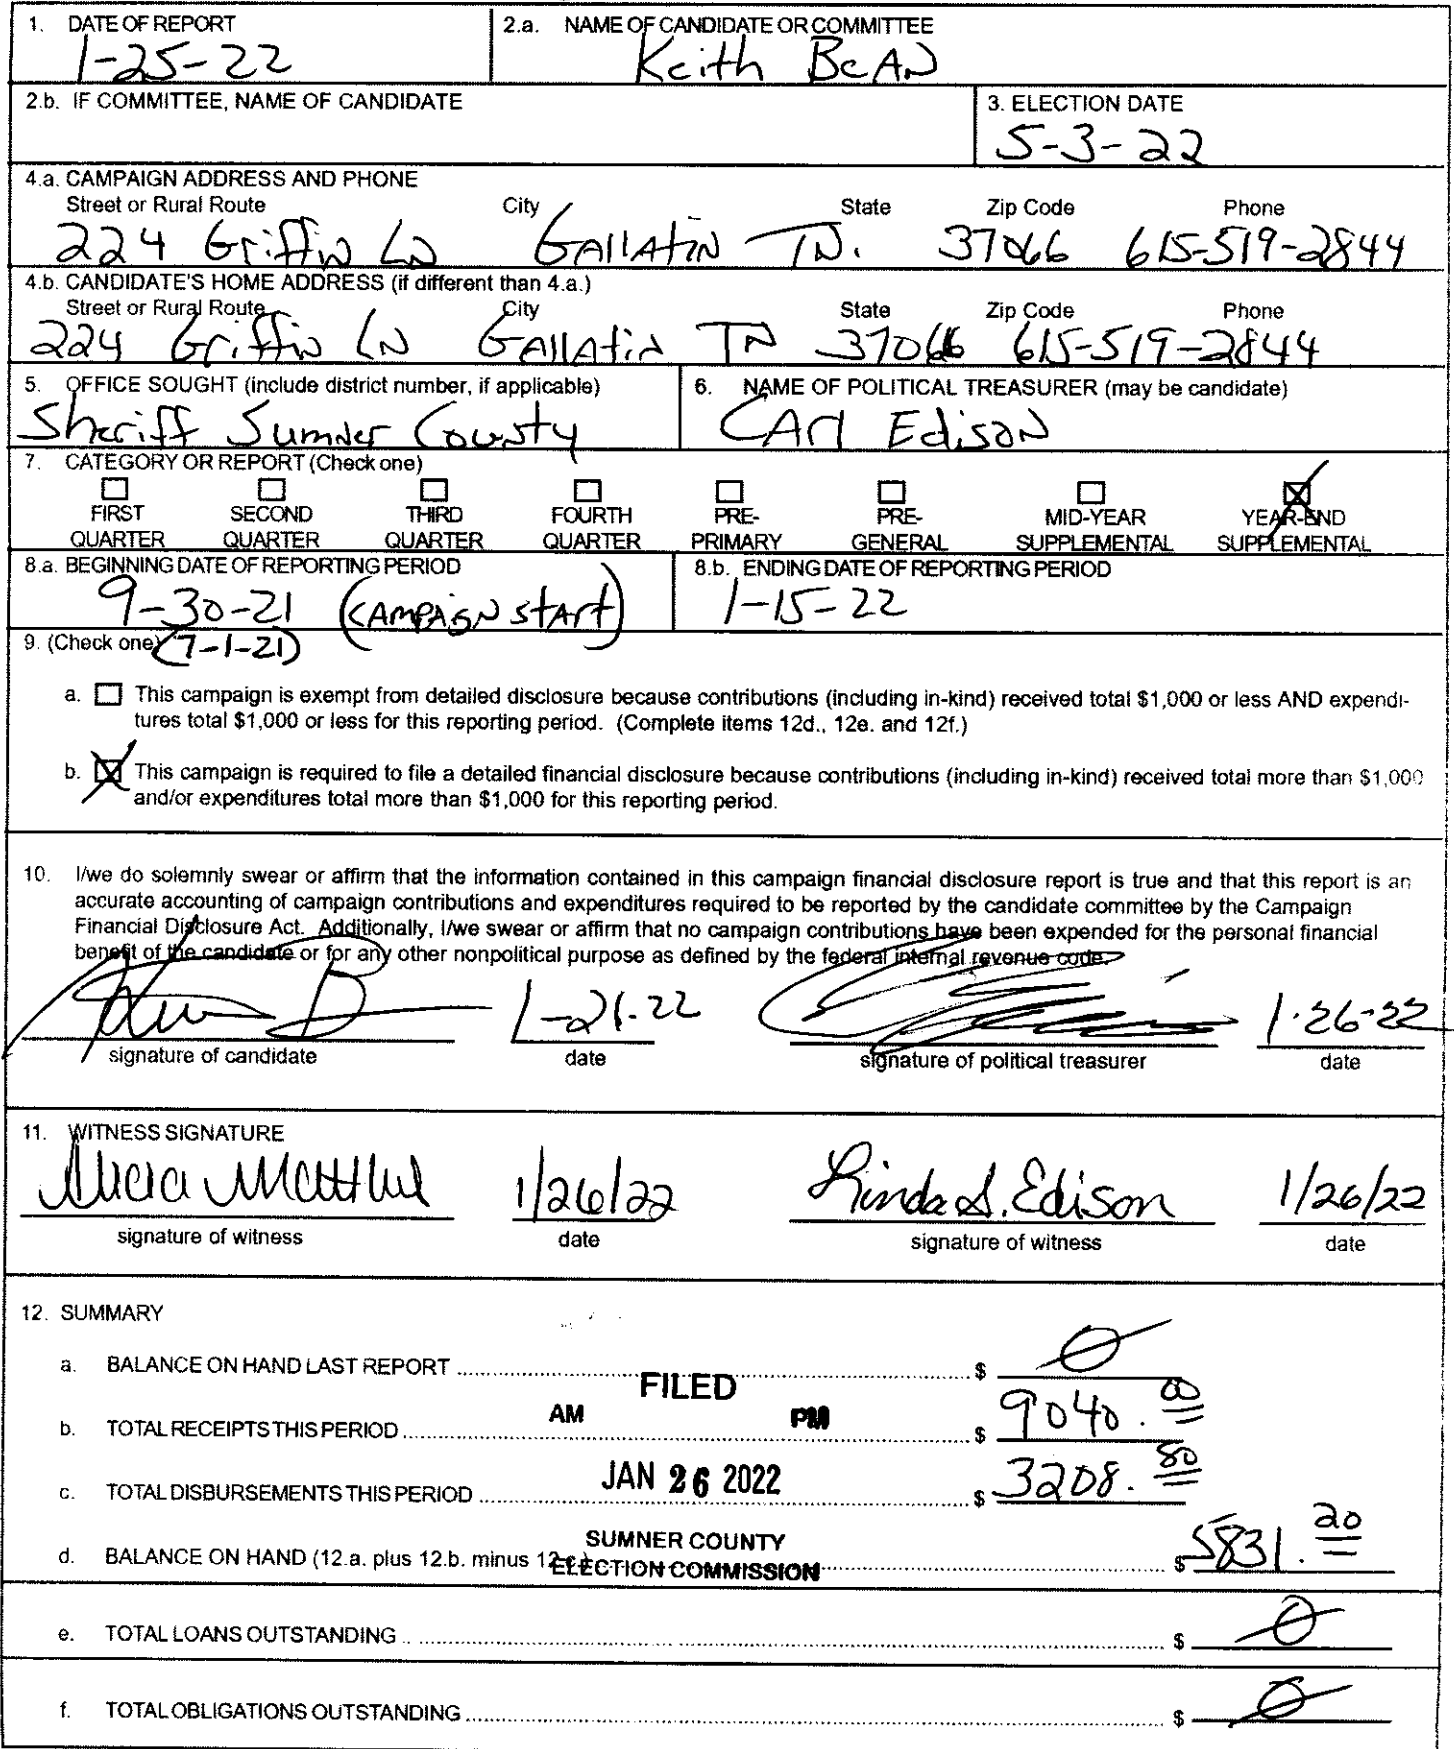 1. DATE OF REPORT
1-25-22
2.a. NAME OF CANDIDATE OR COMMITTEE
Keith BeAN
2.b. IF COMMITTEE, NAME OF CANDIDATE
3. ELECTION DATE
5-3-22
4.a. CAMPAIGN ADDRESS AND PHONE
Street or Rural Route City State Zip Code Phone
224 Griffin LN GAllAtiN TN. 37066 615-519-2844
4.b. CANDIDATE'S HOME ADDRESS (if different than 4.a.)
Street or Rural Route City State Zip Code Phone
224 Griffin LN GAllAtiN TN 37066 615-519-2844
5. OFFICE SOUGHT (include district number, if applicable)
Sheriff Sumner County
6. NAME OF POLITICAL TREASURER (may be candidate)
CArl EdisoN
7. CATEGORY OR REPORT (Check one)
FIRST QUARTER
SECOND QUARTER
THIRD QUARTER
FOURTH QUARTER
PRE-PRIMARY
PRE-GENERAL
MID-YEAR SUPPLEMENTAL
YEAR-END SUPPLEMENTAL
8.a. BEGINNING DATE OF REPORTING PERIOD
9-30-21 (CAMPAIGN StArt)
8.b. ENDING DATE OF REPORTING PERIOD
1-15-22
9. (Check one) (7-1-21)
a. This campaign is exempt from detailed disclosure because contributions (including in-kind) received total $1,000 or less AND expendi-
tures total $1,000 or less for this reporting period. (Complete items 12d., 12e. and 12f.)
b. This campaign is required to file a detailed financial disclosure because contributions (including in-kind) received total more than $1,000
and/or expenditures total more than $1,000 for this reporting period.
10. I/we do solemnly swear or affirm that the information contained in this campaign financial disclosure report is true and that this report is an
accurate accounting of campaign contributions and expenditures required to be reported by the candidate committee by the Campaign
Financial Disclosure Act. Additionally, I/we swear or affirm that no campaign contributions have been expended for the personal financial
benefit of the candidate or for any other nonpolitical purpose as defined by the federal internal revenue code.
1-21-22 1-26-22
signature of candidate date signature of political treasurer date
11. WITNESS SIGNATURE
1/26/22 Linda S. Edison 1/26/22
signature of witness date signature of witness date
12. SUMMARY
a. BALANCE ON HAND LAST REPORT $ 0
FILED
AM PM
b. TOTAL RECEIPTS THIS PERIOD $ 9040.00
JAN 26 2022
c. TOTAL DISBURSEMENTS THIS PERIOD $ 3208.80
SUMNER COUNTY
ELECTION COMMISSION
d. BALANCE ON HAND (12.a. plus 12.b. minus 12.c.) $ 5831.20
e. TOTAL LOANS OUTSTANDING $ 0
f. TOTAL OBLIGATIONS OUTSTANDING $ 0